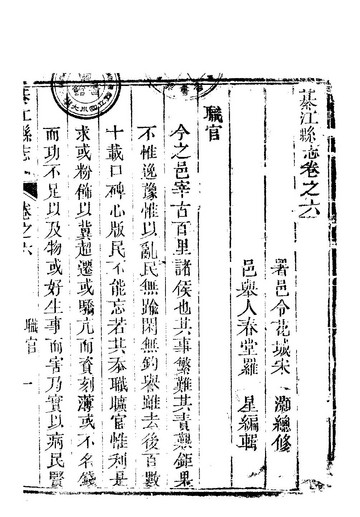 綦江縣志卷之六
署邑令花城宋 灝總修
邑舉人春堂羅 星編輯
職官
今之邑宰古百里諸侯也其事繁難其責艱鉅果
不惟逸豫惟以亂民無踰閑無鈞譽雖去後百數
十載口碑心版民不能忘若其奉職曠官惟利是
求或粉飾以冀超遷或驕亢而資刻薄或不名錢
而功不足以及物或好生事而害乃實以病民賢
綦江縣志
卷之六
職官
一